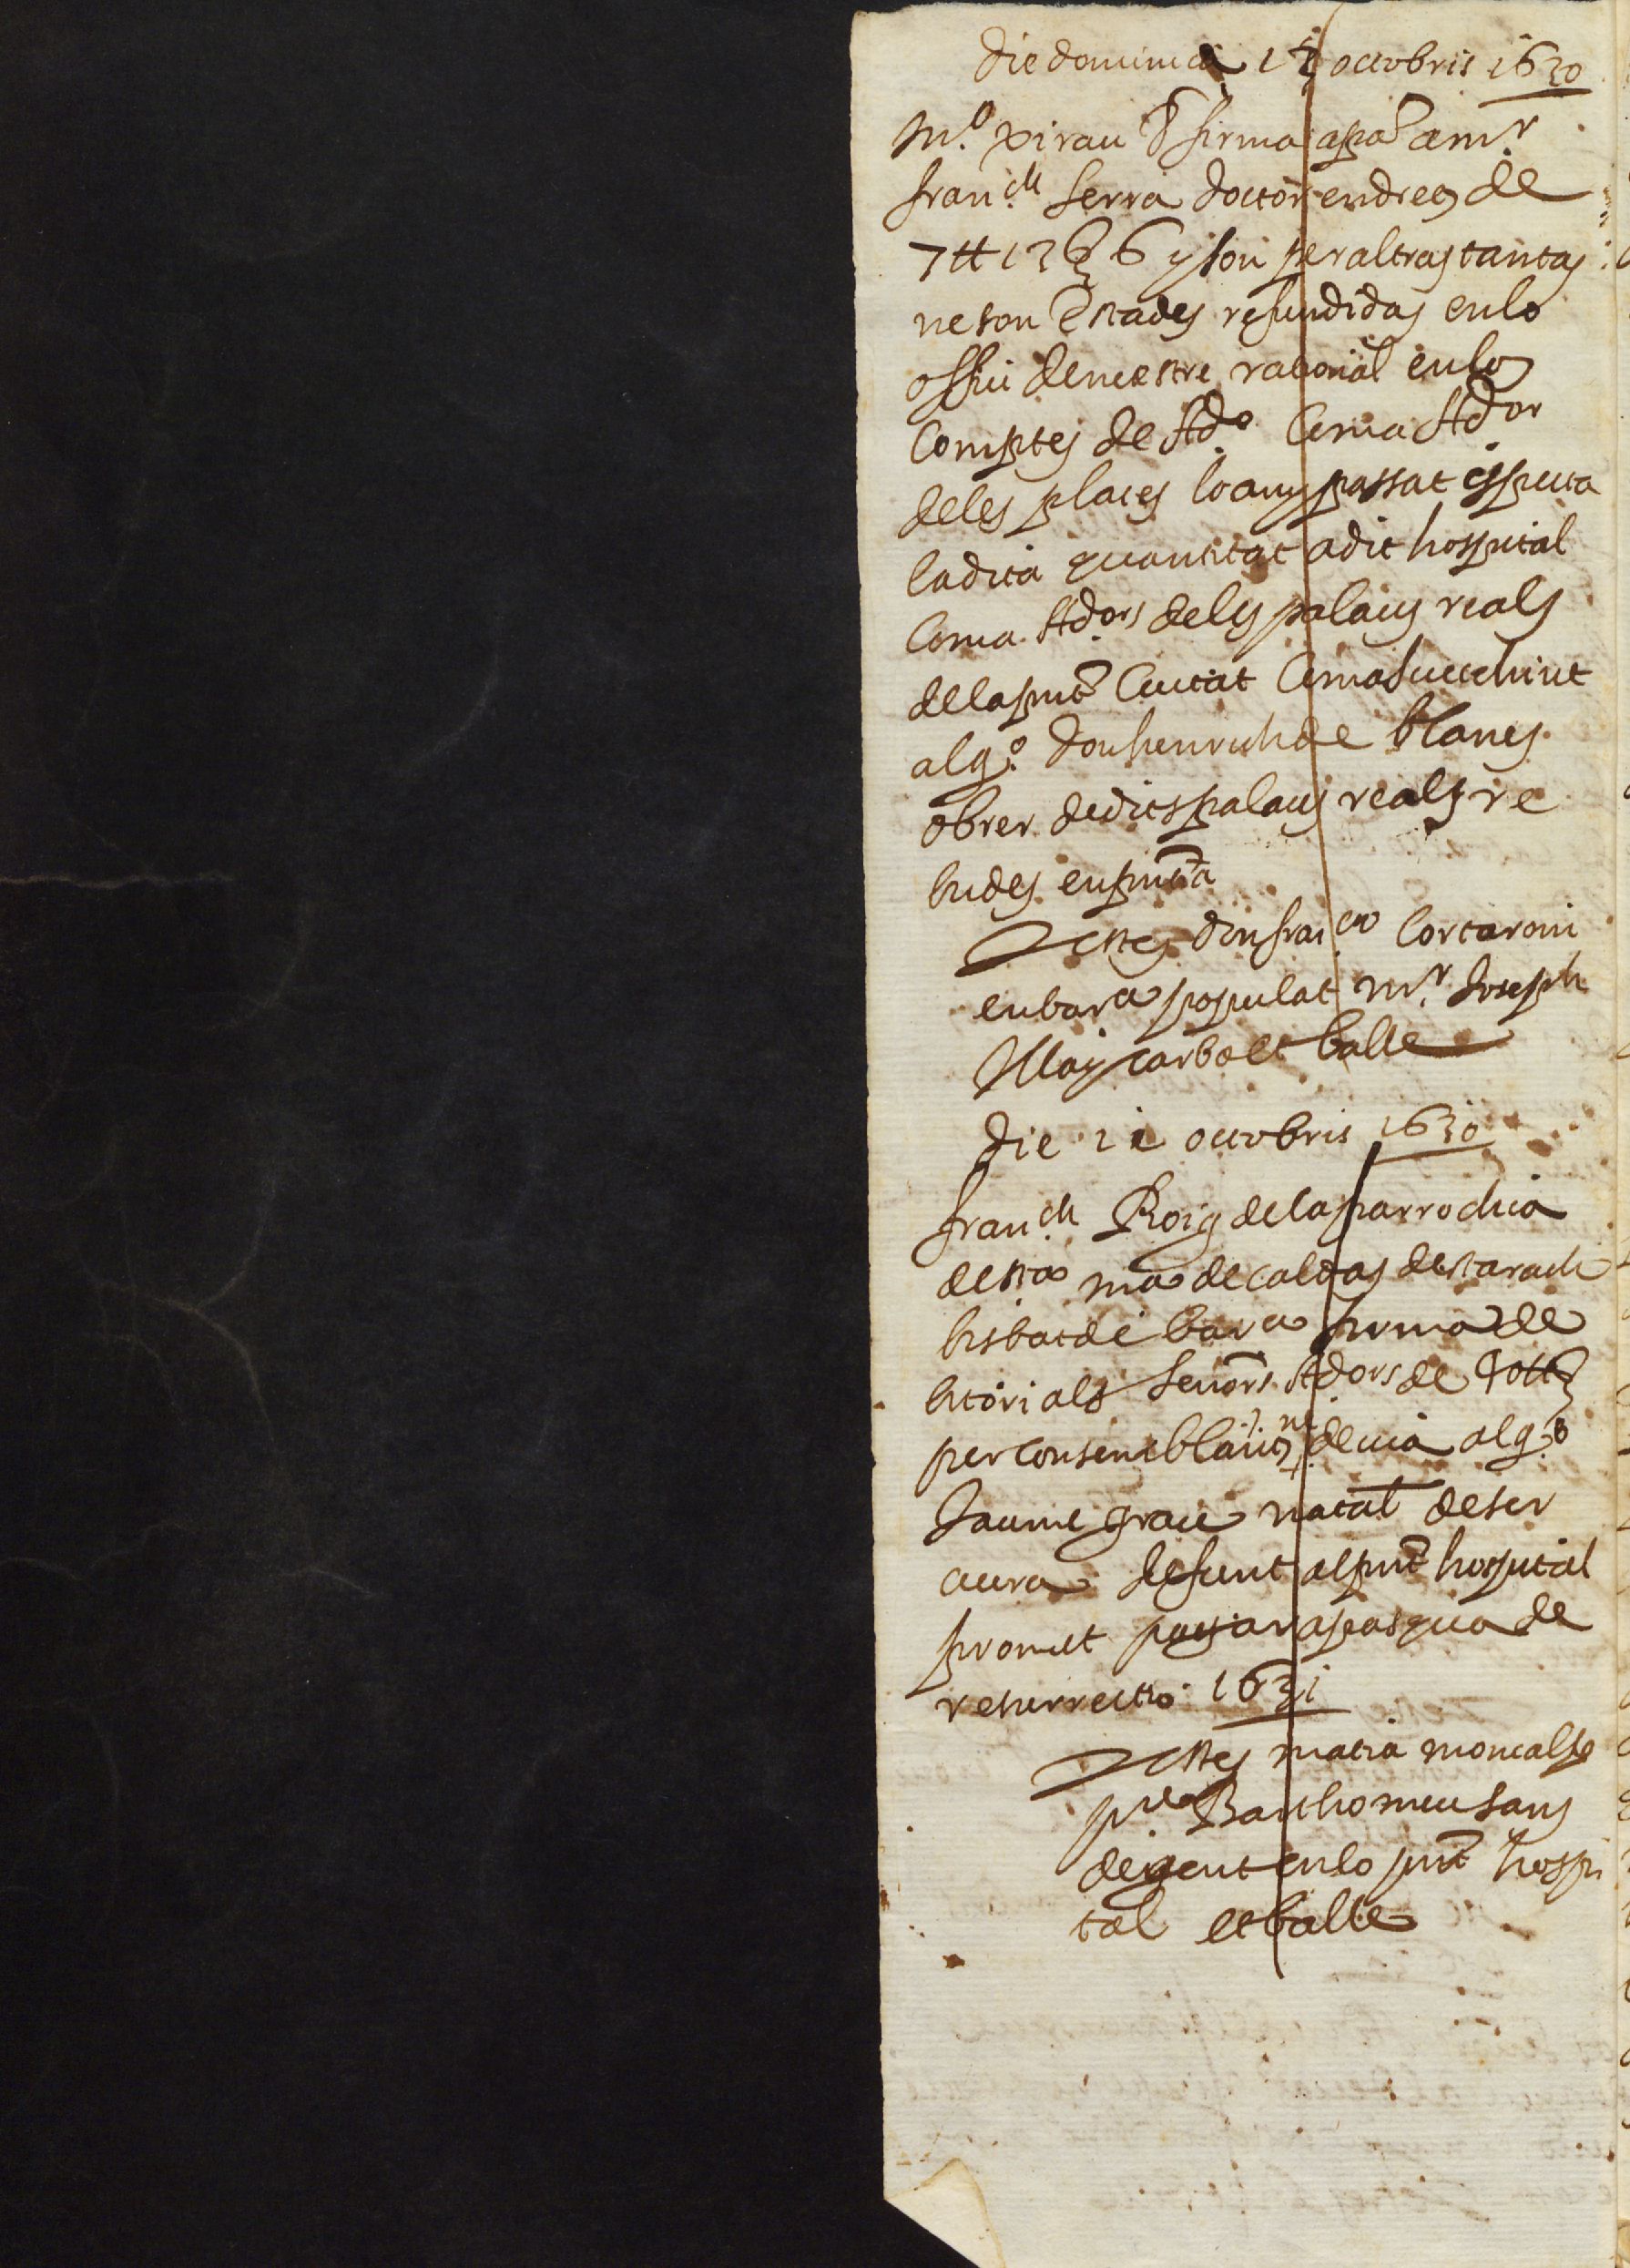 die dominica 1 octobris 1630
m.º pirau firma apo.ᵃ a m.ʳ
fran.ᶜʰ serra doctor en drets de
7 tt 13 ß 6 y son per altras tantas
ne son estades refundidas en lo
offici de mestre rational en los
Comptes de Ad.º Coma Ad.ᵒʳ
de les places lo any passat y specta
la dita quantitat a dit hospital
Coma Ad.ᵒʳˢ dels palaus reals
de la pnt Ciutat Coma succehint
al q.º don henrich de blanes
obrer de dits palaus reals re
budes en pntia
Testes don fran.ᶜᵒ Cortaroni
en bar.ᵃ populat m.ʳ Joseph
May carbo et balle
die 11 octobris 1630
fran.ᶜʰ Roig de la parrochia
de sta ma de caldas de starach
bisbat de bar.ᵃ firma de
bitori als señors Adors de
per consemblants ne devia al q.º
Jaume graci natal de ser
cura defunt al pnt hospital
promet pagar a pasqua de
resurrectio 1631
Testes matia moncalp
p.ʳᵉ Barthomeu sans
degent en lo pnt hospi
tal et balle